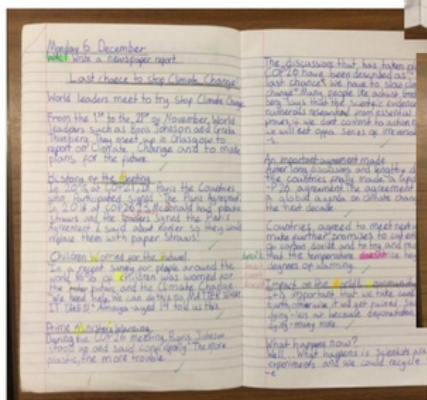 Monday 6 December
WALT write a newspaper report
Last chance to stop Climate Change
World leaders meet to try stop Climate Change
From the 1st to the of November, World
leaders such as Boris Johnson and Greta
Thunberg. They meet up in Glasgow to
report on Climate Change and to make
plans for the future.
History of the meeting
In 2015 at COP21, in Paris the Countries
who Participated signed The Paris Agreement
2018 at McDonald had plastic
straws and the signed the Paris
Agreement I said about so they would
replace them with paper straws!
Children Worried for the future!
In a recent survey for people around the
world of children was worried for
the future and the Climate Change
"We need help. We can do this no MATTER WHAT
IT TAKES" aged 14 told us this
Prime Minister's Warning
During the COP26 meeting Boris Johnson
stood up and said "The more
plastic, the more trouble
The discussions that has taken
COP26 have been described as
last chance we have to slow
change". Many people like activist
says that the scientific evidence
numerous from essential
proves, if we don't commit to action
we will set off a series of
An important agreement made
After long discussions and lengthy
the countries finally made
P26 agreement. The agreement
a global agenda on climate change
the next decade.
Countries agreed to meet next
make further promises to cut
of carbon dioxide and to try and
that the temperature doesn't
degrees of warming.
Impact on the World's community
It is important that we take care
Earth, otherwise it will get
dying - less air because deforestation
dying - many more.
What happens now?
Well... What happens is Scientists
experiments and we could recycle